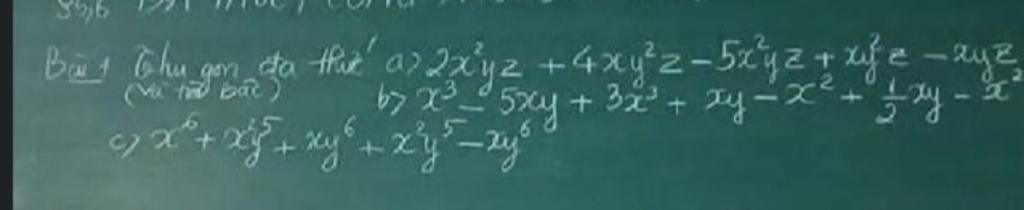 Bài 1 Thu gọn đa thức a) 2x²yz + 4xy²z - 5x²yz + xy²z - xyz
(và tìm bậc) b) x³ - 5xy + 3x³ + xy - x² + 1/2 xy - x²
c) x⁶ + x²y⁵ + xy⁶ + x²y⁵ - xy⁶